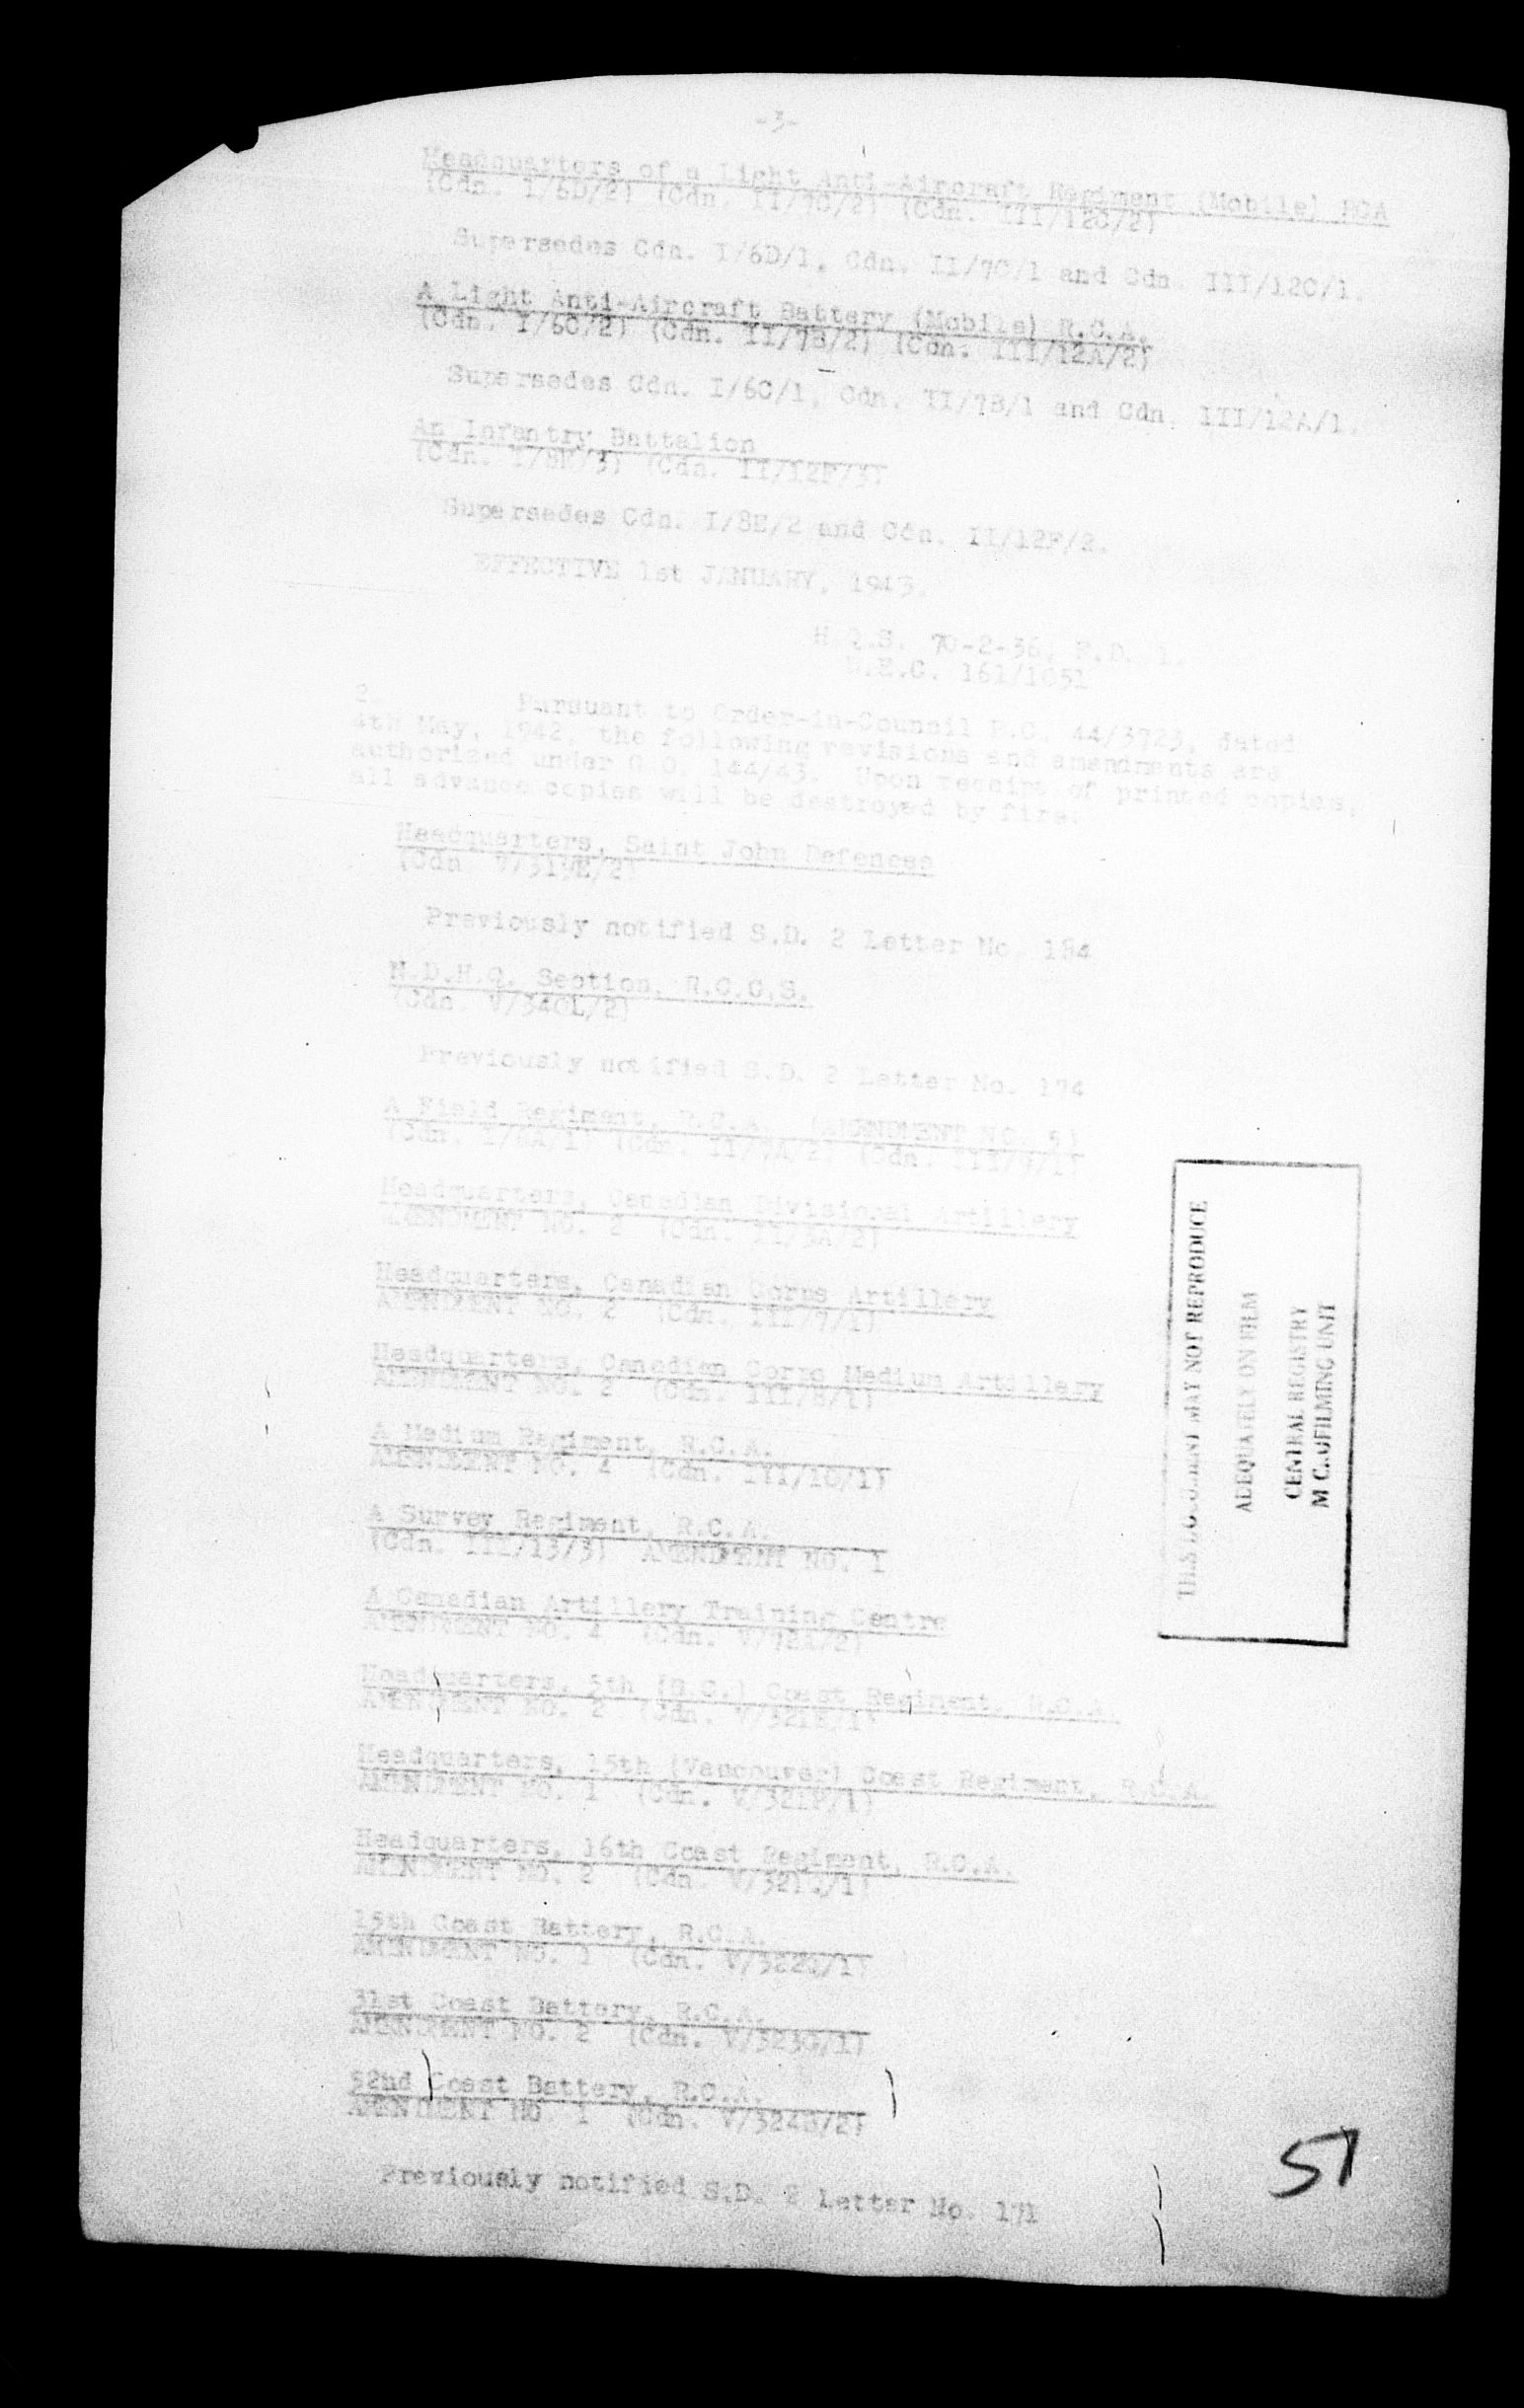 -3-
Headquarters of a Light Anti-Aircraft Regiment (Mobile) RCA
(Cdn. I/6D/2) (Cdn. II/7C/2) (Cdn. III/12C/2)
Supersedes Cdn. I/6D/1, Cdn. II/7C/1 and Cdn. III/12C/1.
A Light Anti-Aircraft Battery (Mobile) R.C.A.
(Cdn. I/6C/2) (Cdn. II/7B/2) (Cdn. III/12A/2)
Supersedes Cdn. I/6C/1, Cdn. II/7B/1 and Cdn. III/12A/1.
An Infantry Battalion
(Cdn. I/8E/3) (Cdn. II/12F/3)
Supersedes Cdn. I/8E/2 and Cdn. II/12F/2.
EFFECTIVE 1st JANUARY, 1943.
H.Q.S. 70-2-36, F.D. 1.
W.E.C. 161/1051
2. Pursuant to Order-in-Council P.C. 44/3723, dated
4th May, 1942, the following revisions and amendments are
authorized under G.O. 144/43. Upon receipt of printed copies,
all advance copies will be destroyed by fire:
Headquarters, Saint John Defences
(Cdn. V/319E/2)
Previously notified S.D. 2 Letter No. 184
N.D.H.Q. Section, R.C.C.S.
(Cdn. V/340L/2)
Previously notified S.D. 2 Letter No. 174
A Field Regiment, R.C.A. (AMENDMENT NO. 5)
(Cdn. II/7A/2)
Headquarters, Canadian Divisional Artillery
AMENDMENT NO. 2 (Cdn. II/3A/2)
Headquarters, Canadian Corps Artillery
AMENDMENT NO. 2 (Cdn. III/7/1)
Headquarters, Canadian Corps Medium Artillery
AMENDMENT NO. 2 (Cdn. III/8/1)
A Medium Regiment, R.C.A.
AMENDMENT NO. 4 (Cdn. III/10/1)
A Survey Regiment, R.C.A.
(Cdn. III/13/3) AMENDMENT NO. 1
A Canadian Artillery Training Centre
AMENDMENT NO. 4 (Cdn. V/72A/2)
Headquarters, 5th (B.C.) Coast Regiment, R.C.A.
AMENDMENT NO. 2 (Cdn.
Headquarters, 15th (Vancouver) Coast Regiment, R.C.A.
AMENDMENT NO. 1 (Cdn. V/321F/1)
Headquarters, 16th Coast Regiment, R.C.A.
AMENDMENT NO. 2 (Cdn.
15th Coast Battery, R.C.A.
AMENDMENT NO. 1 (Cdn.
31st Coast Battery, R.C.A.
AMENDMENT NO. 2 (Cdn. V/323G/1)
52nd Coast Battery, R.C.A.
AMENDMENT NO. 1 (Cdn. V/324B/2)
Previously notified S.D. 2 Letter No. 171
THIS DOCUMENT MAY NOT REPRODUCE
ADEQUATELY ON FILM
CENTRAL REGISTRY
MICROFILMING UNIT
51